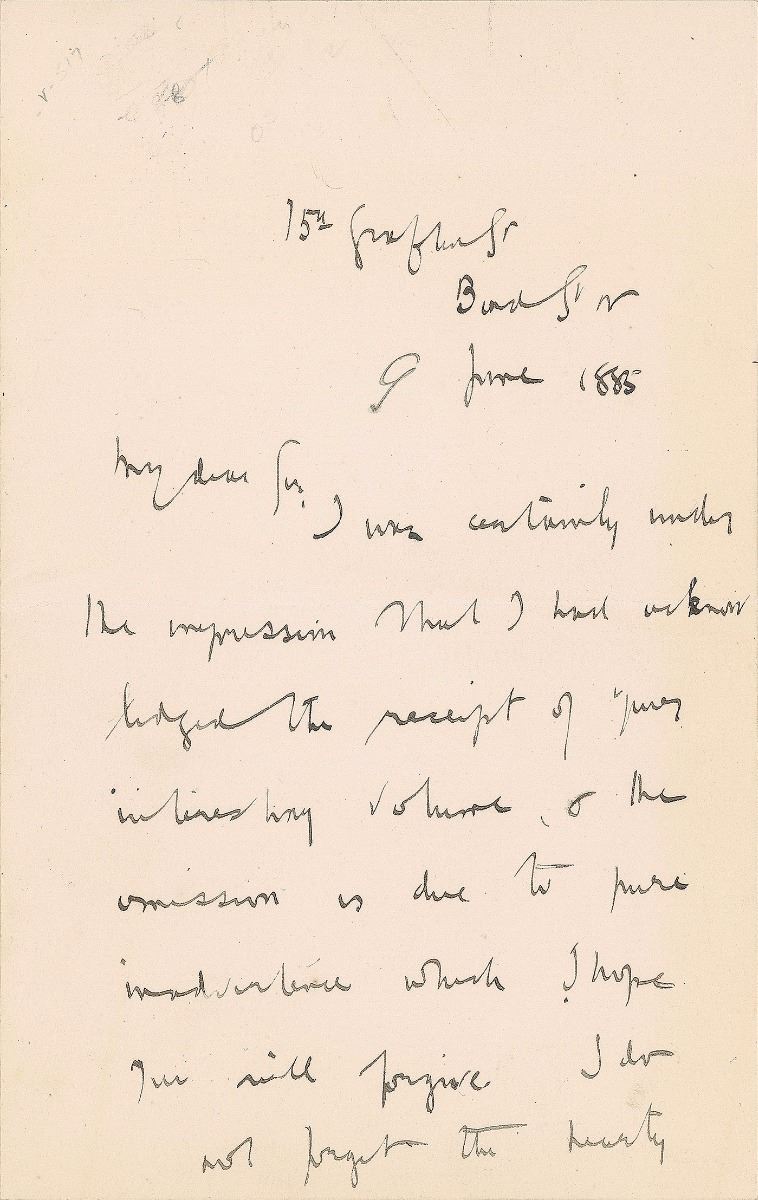 15A Grafton St
Bond St W
9 June 1885
My dear Sir,
I was certainly under
the impression that I had acknow
ledged the receipt of your
interesting volume, & the
omission is due to pure
inadvertence which I hope
you will forgive. I do
not forget the hearty